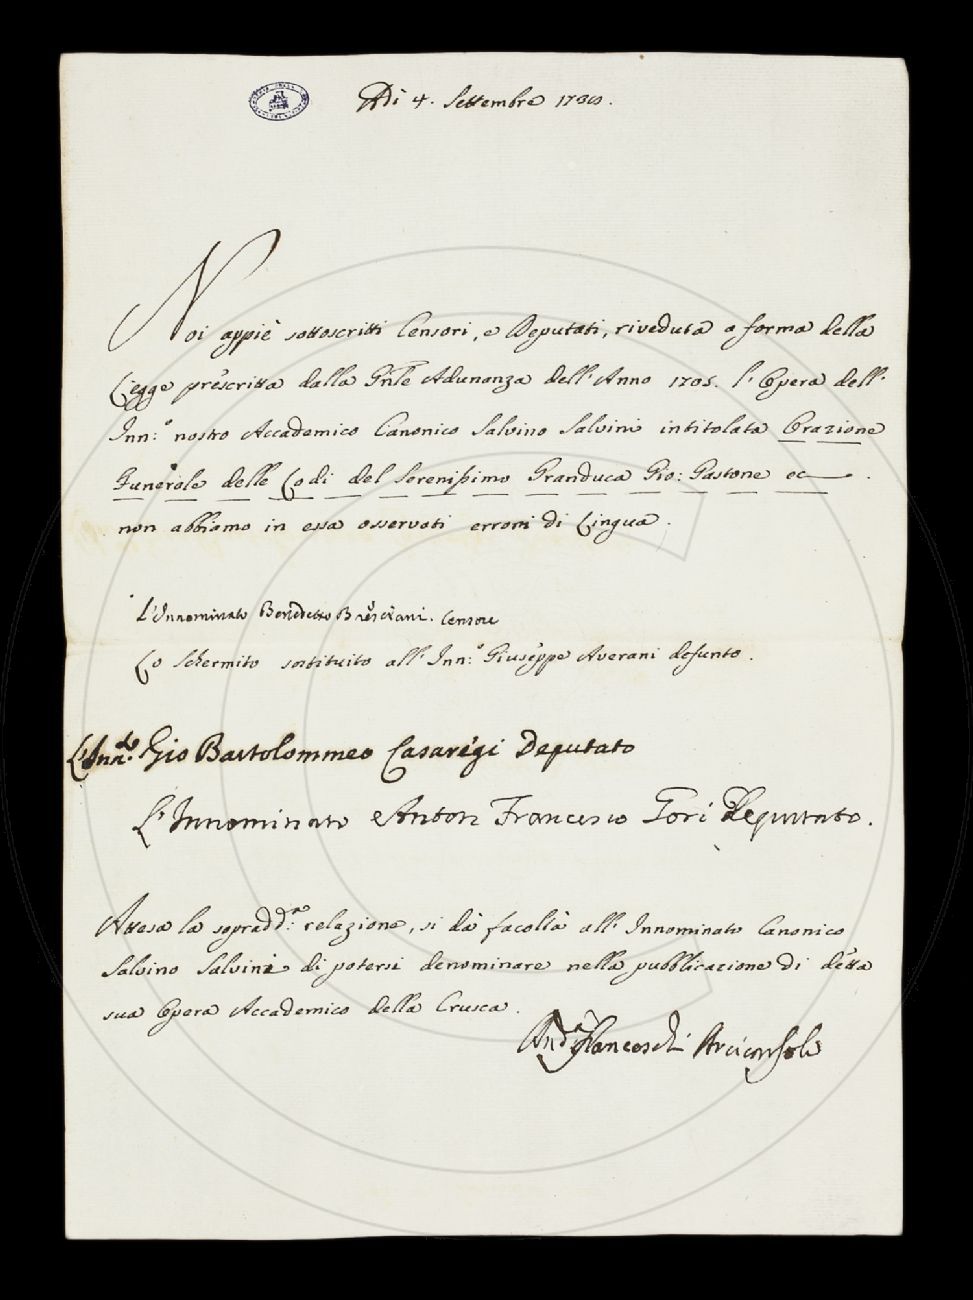 Adì 4. Settembre 1738.
Noi appiè sottoscritti Censori, e Deputati, riveduta a forma della
Legge prescritta dalla Gnle Adunanza dell'Anno 1705. l'Opera dell'
Inn:º nostro Accademico Canonico Salvino Salvini intitolata Orazione
Funerale delle Lodi del Serenissimo Granduca Gio: Gastone ec .
non abbiamo in essa osservati errori di Lingua.
L'Innominato Benedetto Bresciani. Censore
Lo Schermito sostituito all'Inn:º Giuseppe Averani defunto.
L'Inn.to Gio Bartolommeo Casaregi Deputato
L'Innominato Anton Francesco Gori Deputato.
Attesa la sopradd:a relazione, si dà facoltà all'Innominato Canonico
Salvino Salvini di potersi denominare nella pubblicazione di detta
sua Opera Accademico della Crusca.
And.a Franceschi Arciconsolo